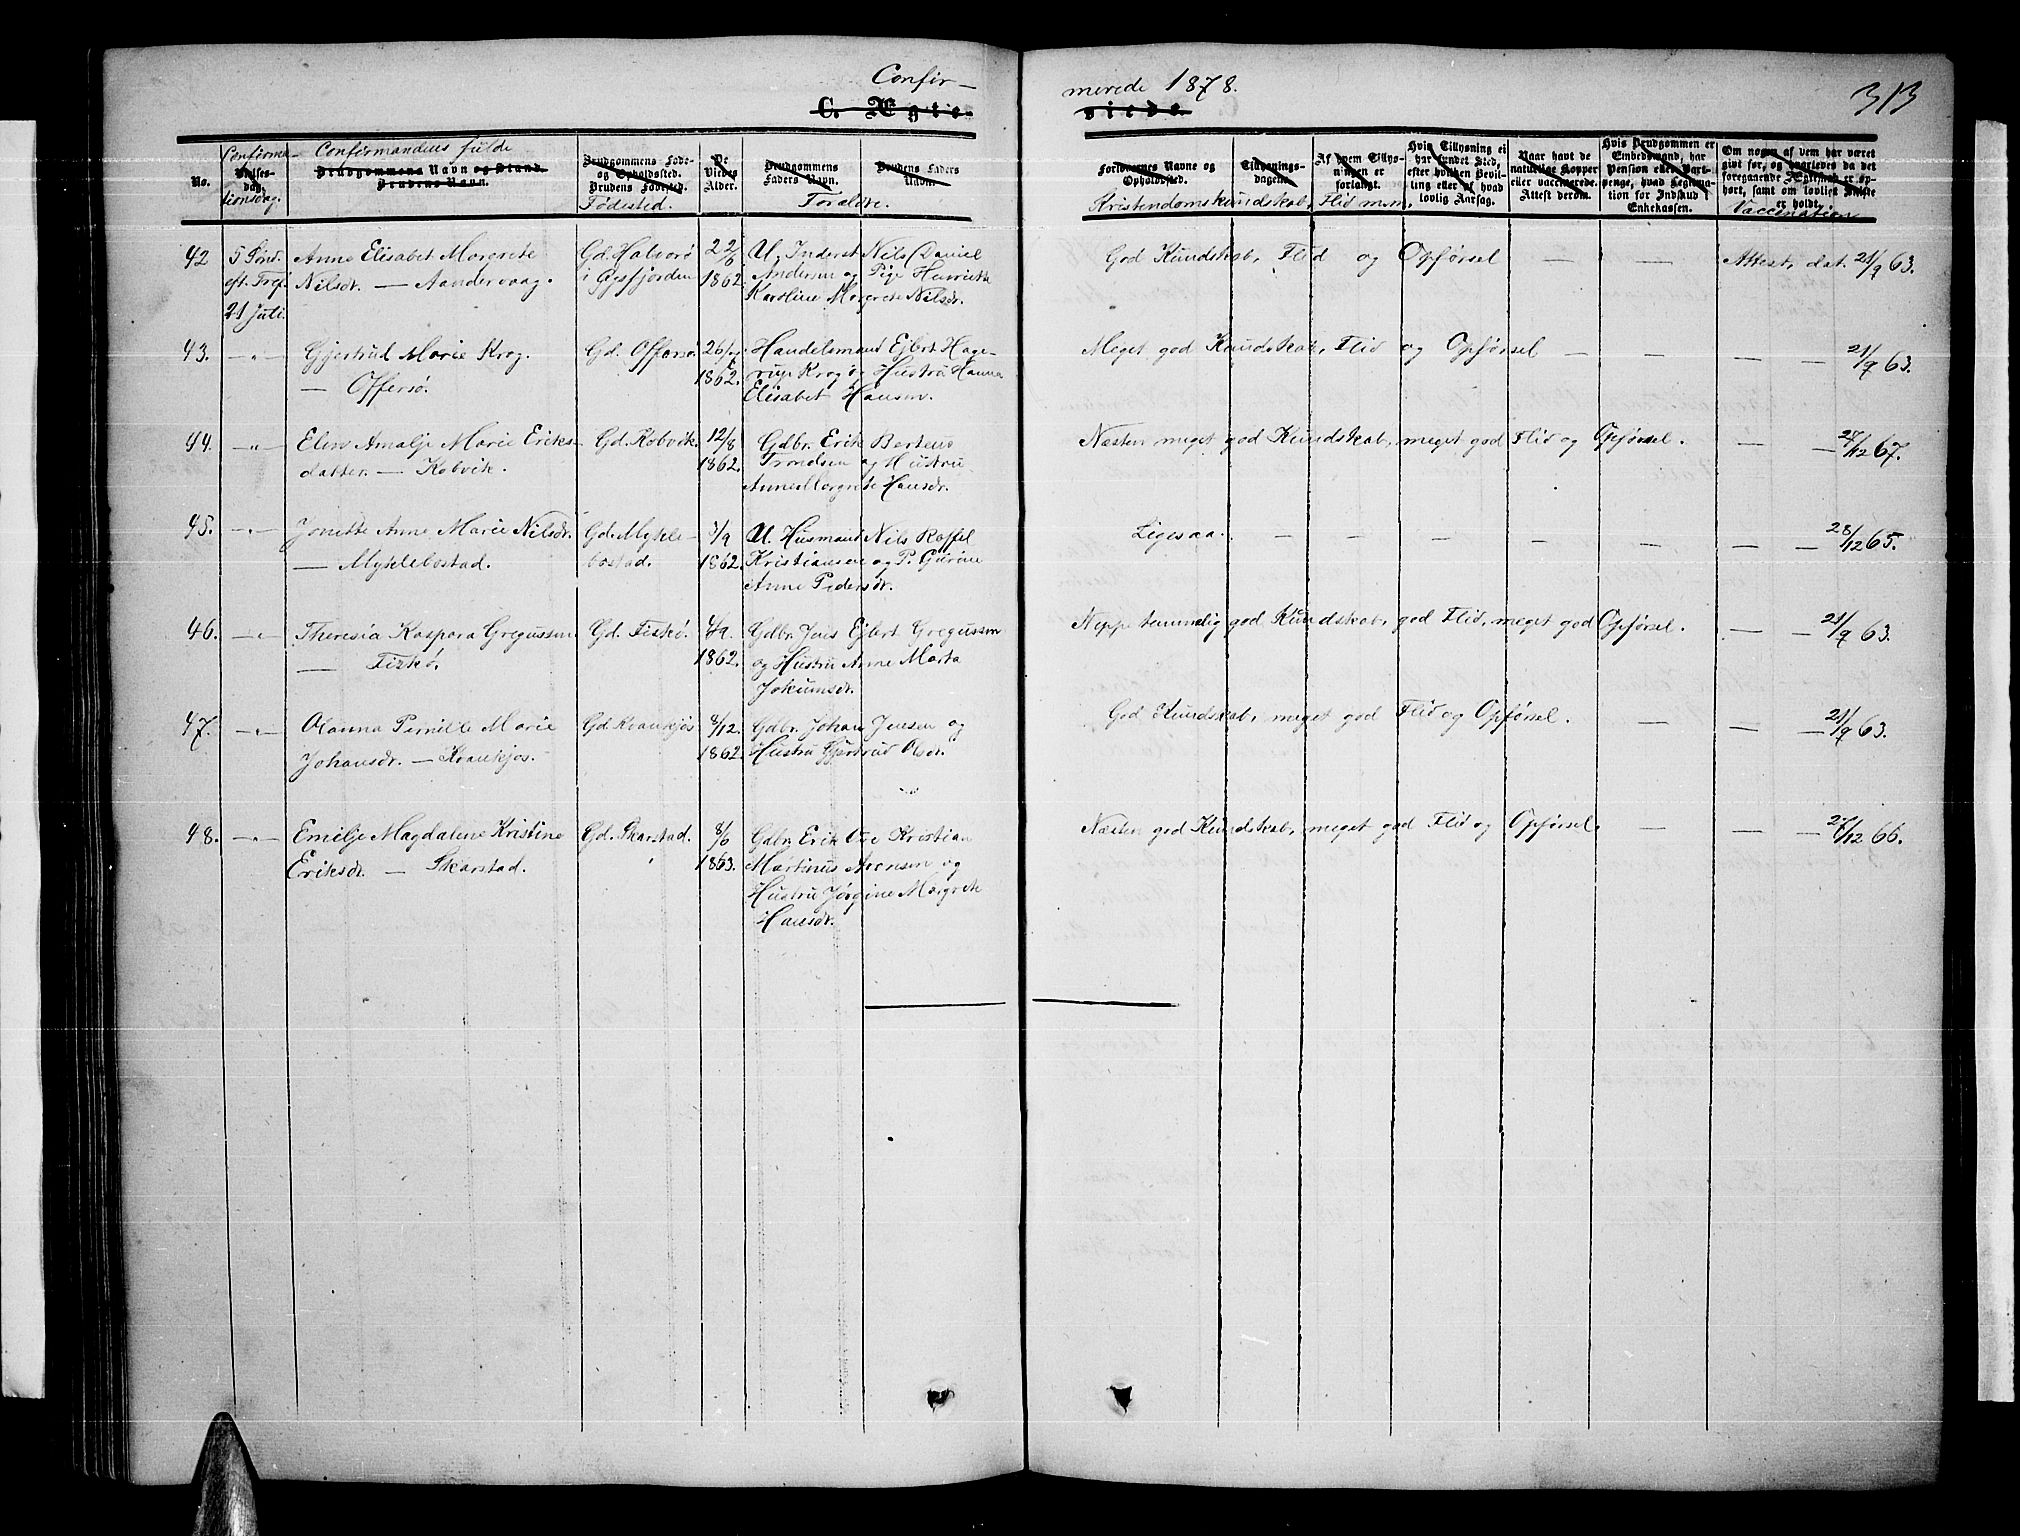 Confir-
merede 1878.
313
C. Ægte-
viede.
No.
Confirma-
Vielses-
dag.
tionsdag.
Confirmandens fulde
Brudgommens Navn og Stand.
Brudens Navn.
Brudgommens Føde-
og Opholdssted.
Brudens Fødested.
Fødested.
De
Viedes
Alder.
Brudgommens
Faders Navn.
Brudens Faders
Navn.
Foraldre.
Forlovernes Navne og
Opholdssted.
Kristendomskundskab,
Tillysnings-
dagene.
Af hvem Tillys-
ningen er
forlangt.
Flid m.m.
Hvis Tillysning ei
har fundet Sted,
efter hvilken Bevil-
ling eller af hvad
lovlig Aarsag.
Naar havt de
naturlige Kopper
eller vaccinerede.
Attest derom.
Hvis Brudgommen er
Embedsmand, har
Pension eller Vart-
penge, hvad Legitima-
tion for Indskud i
Enkekassen.
Om nogen af dem har været
givt før, og saaledes da det
foregaaende Ægteskab er op-
hørt, samt om lovligt Skifte
er holdt.
Vaccination
42 5 Sønd. Anne Elisabet Margrete Gd. Halvorø 22/6 U, Inderst Nils Daniel God Kundskab, Flid og Opførsel — — Attest, dat. 21/9 63.
eft. Tref. Nilsdr. — Aandervaag. i Øysfjorden 1862 Andersen og Pige Henriette
21 Juli. Karoline Margrete Nilsdr.
43. —"— Gjertrud Marie Krog. Gd. Offersø 26/ Handelsmand Ejlert Hage- Meget god Kundskab, Flid og Opførsel — — — — 21/9 63.
— Offersø. 1862. rup Krog og Hustru Hanna
Elisabet Hansen.
44. —"— Elen Amalje Marie Eriks- Gd. Kobvik. 12/8 Gdbr. Erik Bertens Næsten meget god Kundskab, meget god Flid og Opførsel. — — 27/12 67.
datter. — Kobvik. 1862. Trondsen og Hustru
Anne Margrete Hansdr.
45. —"— Jonette Anne Marie Nilsdr. Gd. Mykle- 7/9 U. Husmand Nils Roffel Ligesaa. — — — — — — 28/12 65.
— Myklebostad. bostad. 1862. Kristiansen og P. Gurine
Anne Pedersdr.
46. —"— Theresia Kaspara Gregussen Gd. Fiskø. /9. Gdbr. Jens Ejlert Gregussen Neppe temmelig god Kundskab, god Flid, meget god Opførsel. — — 21/9 63.
— Fiskø. 1862. og Hustru Anne Marta
Jokumsdr.
47. —"— Olanna Pernille Marie Gd. Kvankjøs 8/12. Gdbr. Johan Jensen og God Kundskab, meget god Flid og Opførsel. — — — 21/9 63.
Johansdr. — Kvankjøs. 1862. Hustru Gjertrud Olsdr.
48. —"— Emilje Magdalene Kristine Gd. Skarstad. 8/6 Gdbr. Erik Ove Kristian Næsten god Kundskab, meget god Flid og Opførsel. — — — 27/12 66.
Eriksdr. — Skarstad. 1863. Martinus Arensen og
Hustru Jørgine Margrete
Hansdr.